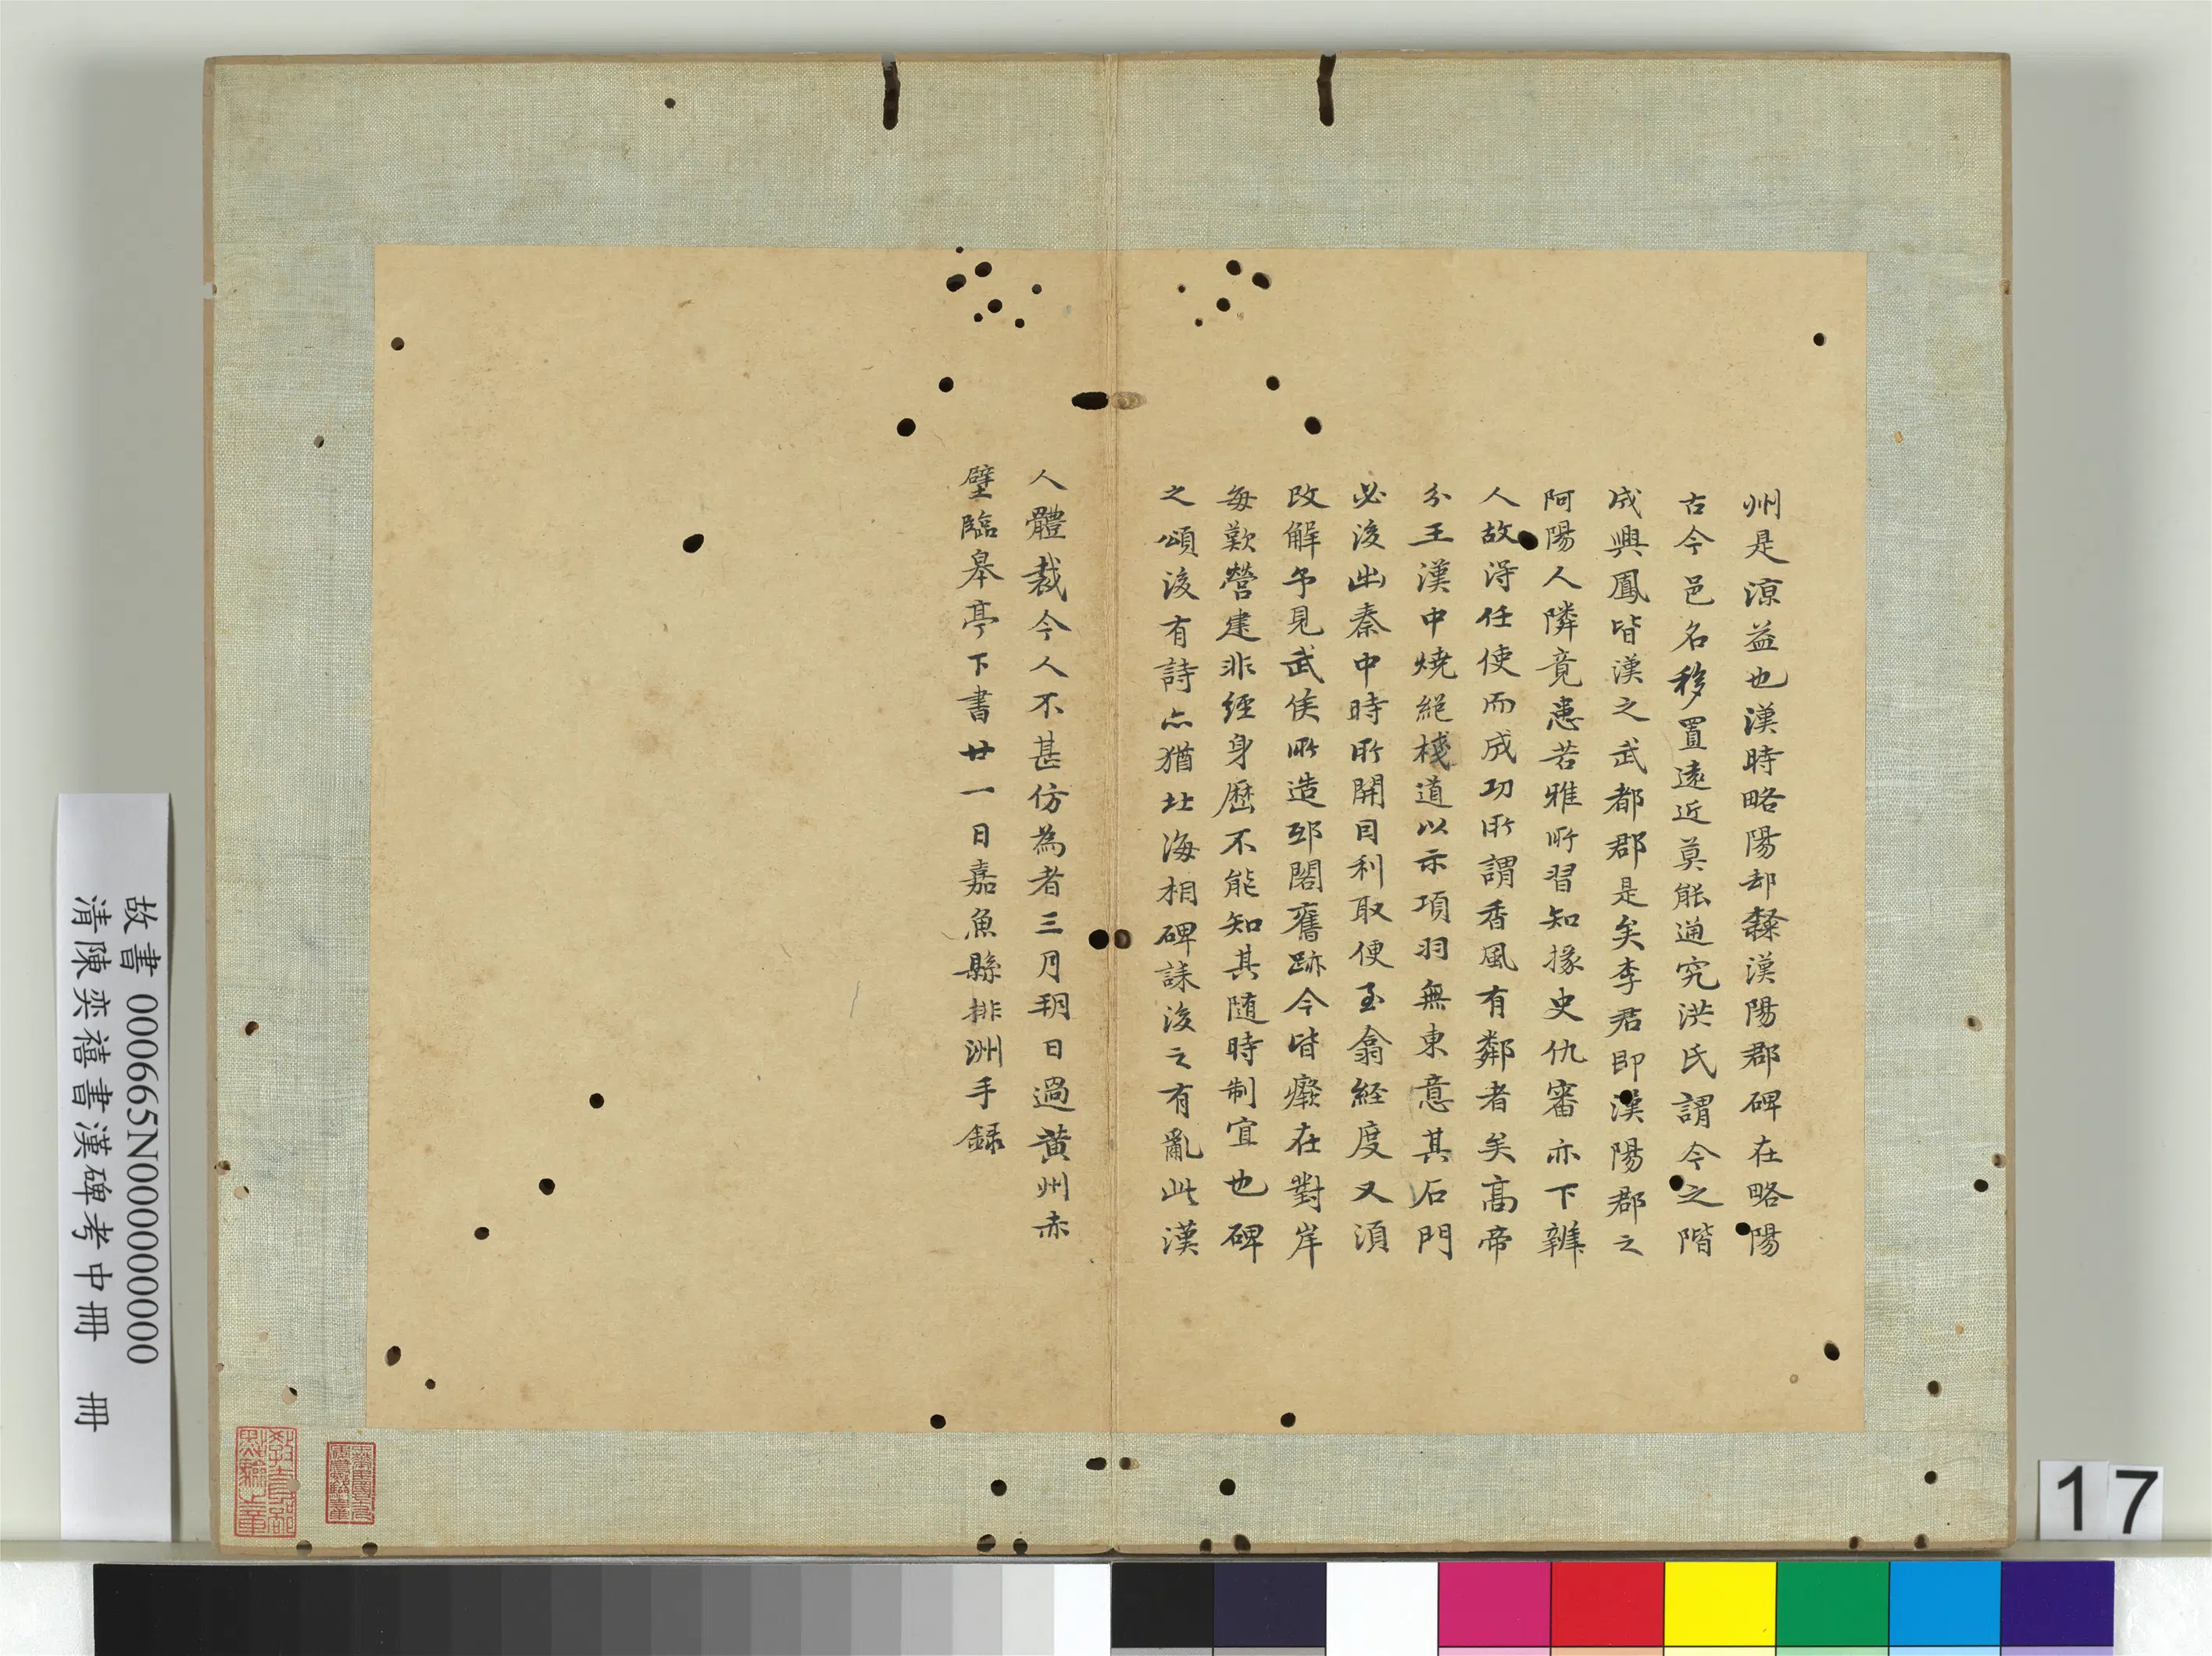 州是涼益也漢時略陽却隸漢陽郡碑在略陽
古今邑名移置遠近莫能通究洪氏謂今之階
成興鳳皆漢之武都郡是矣李君即漢陽郡之
阿陽人隣竟患苦雅所習知掾史仇審亦下辨
人故淂任使而成功所謂香風有鄰者矣高帝
分王漢中燒絕棧道以示項羽無東意其石門
必後出秦中時所開目利取便至翕経度又湏
改解乍見武侯所造郖閣舊跡今皆癈在對岸
每歎營建非經身歷不能知其隨時制宜也碑
之頌後有詩亦猶北海相碑誄後之有亂此漢
人體裁今人不甚仿為者三月朔日過黃州赤
壁臨皋亭下書廿一日嘉魚縣排洲手録
故書 000665N000000000
清陳奕禧書漢碑考中冊 冊
17
教育部點驗之章